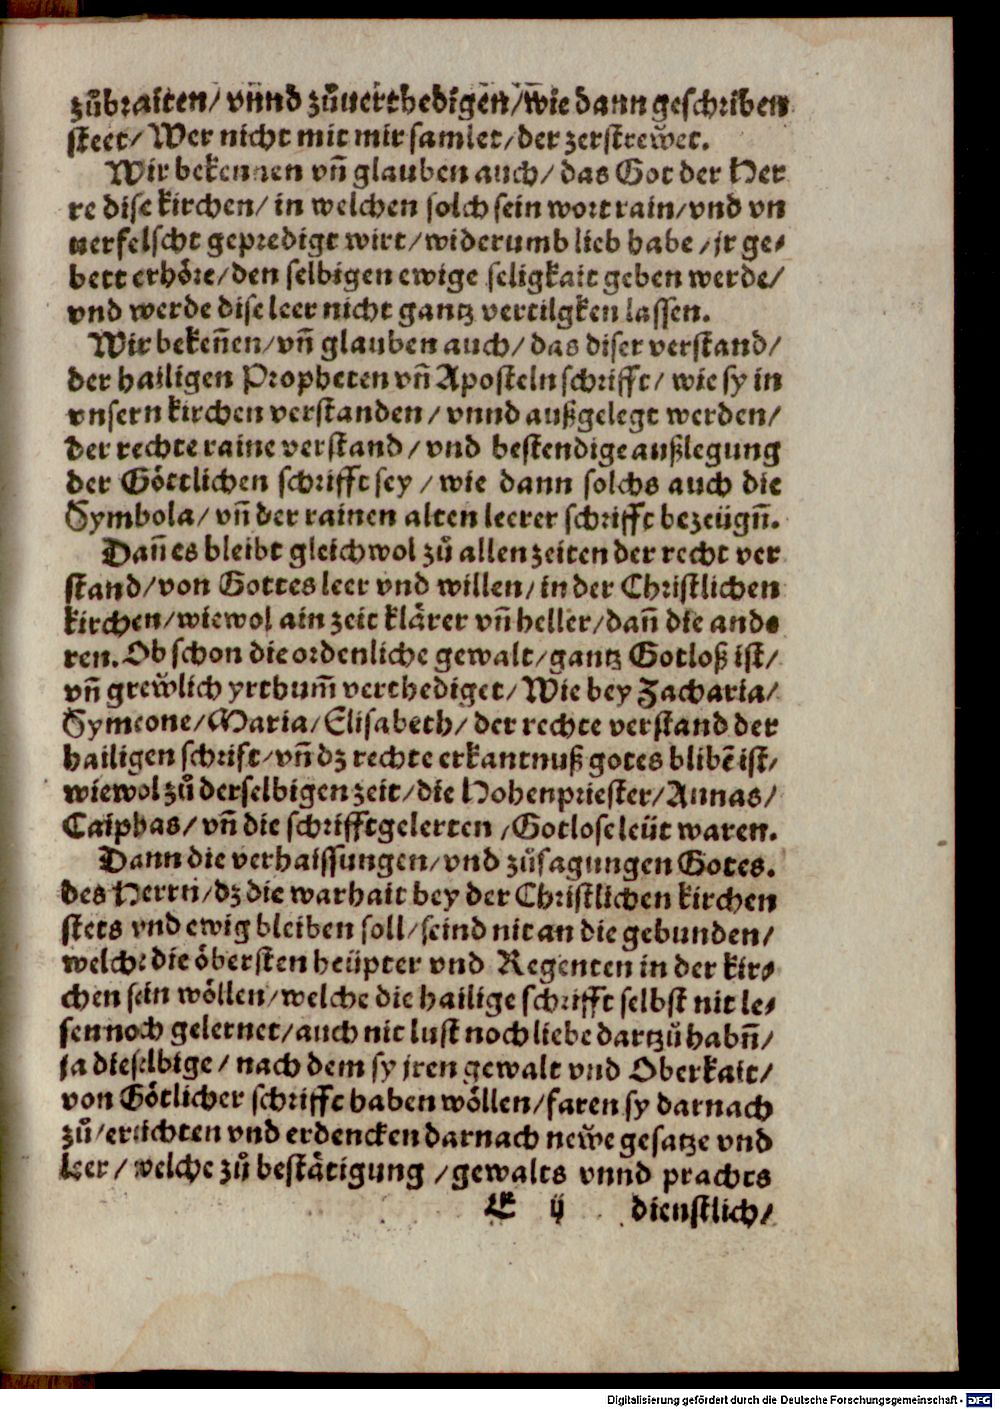 zůbraiten/ vnnd zůuerthedigen/ wie dann geschriben
steet/ Wer nicht mit mir samlet/ der zerstreẅet.
Wir bekennen vn̄ glauben auch/ das Got der Her
re dise kirchen/ in welchen solch sein wort rain/ vnd vn
uerfelscht gepredigt wirt/ widerumb lieb habe/ jr ge⸗
bett erhöre/ den selbigen ewige seligkait geben werde/
vnd werde dise leer nicht gantz vertilgken lassen.
Wir beken̄en/ vn̄ glauben auch/ das diser verstand/
der hailigen Propheten vn̄ Aposteln schrifft/ wie sy in
vnsern kirchen verstanden/ vnnd außgelegt werden/
der rechte raine verstand/ vnd bestendige außlegung
der Göttlichen schrifft sey/ wie dann solchs auch die
Symbola/ vn̄ der rainen alten leerer schrifft bezeügn̄.
Dan̄ es bleibt gleichwol zů allen zeiten der recht ver
stand/ von Gottes leer vnd willen/ in der Christlichen
kirchen/ wiewol ain zeit klärer vn̄ heller/ dan̄ die ande
ren. Ob schon die ordenliche gewalt/ gantz Gotloß ist/
vn̄ greẅlich yrthum̄ verthediget/ Wie bey Zacharia/
Symeone/ Maria/ Elisabeth/ der rechte verstand der
hailigen schrift/ vn̄ dz rechte erkantnuß gotes blibē ist/
wiewol zů derselbigen zeit/ die Hohenpriester/ Annas/
Caiphas/ vn̄ die schrifftgelerten/ Gotlose leüt waren.
Dann die verhaissungen/ vnd zůsagungen Gotes.
des Herrn/ dz die warhait bey der Christlichen kirchen
stets vnd ewig bleiben soll/ seind nit an die gebunden/
welche die öbersten heüpter vnd Regenten in der kir⸗
chen sein wöllen/ welche die hailige schrifft selbst nit le⸗
sen noch gelernet/ auch nit lust noch liebe dartzů habn̄/
ja dieselbige/ nach dem sy jren gewalt vnd Oberkait/
von Götlicher schrifft haben wöllen/ faren sy darnach
zů/ erdichten vnd erdencken darnach neẅe gesatze vnd
leer/ welche zů bestätigung/ gewalts vnnd prachts
E ij dienstlich/
Digitalisierung gefördert durch die Deutsche Forschungsgemeinschaft - DFG